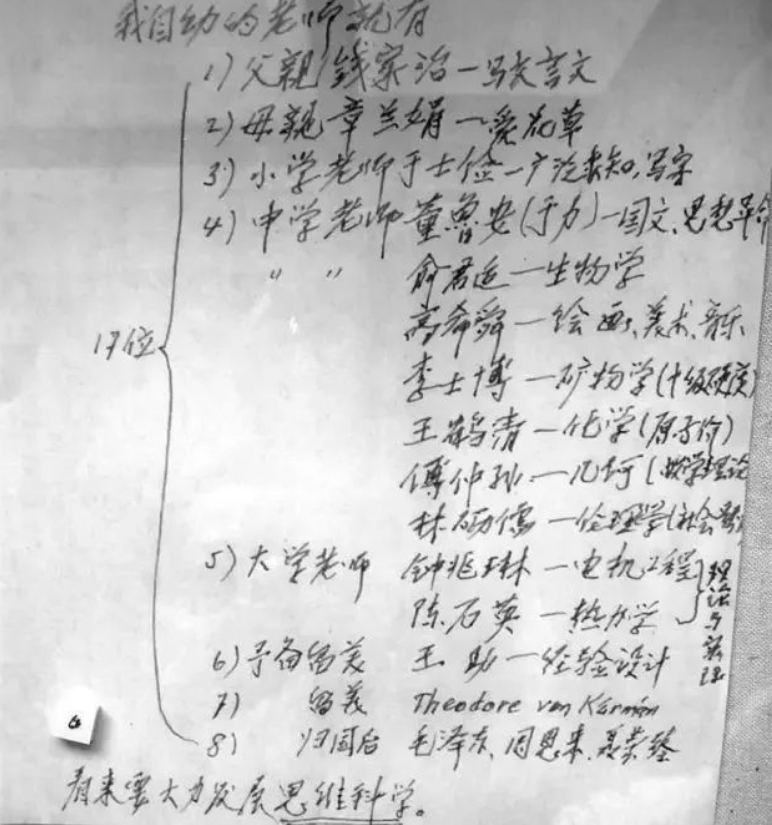 我自幼的老师就有
1) 父亲 钱家治—写文言文
2) 母亲 章兰娟—爱花草
3) 小学老师于士俭—广泛求知,写字
4) 中学老师 董鲁安(于力)—国文、思想革命
" " 俞君适—生物学
高希舜—绘画、美术、音乐
李士博—矿物学(十级硬度)
王鹤清—化学(原子价)
傅仲孙—几何(数学理论
17位
林砺儒—伦理学(社会
5) 大学老师 钟兆琳—电机工程
陈石英—热力学
理论与实际
6) 予备留美 王助—经验设计
7) 留美 Theodore von Kármán
8) 归国后 毛泽东、周恩来、聂荣臻
看来要大力发展思维科学。